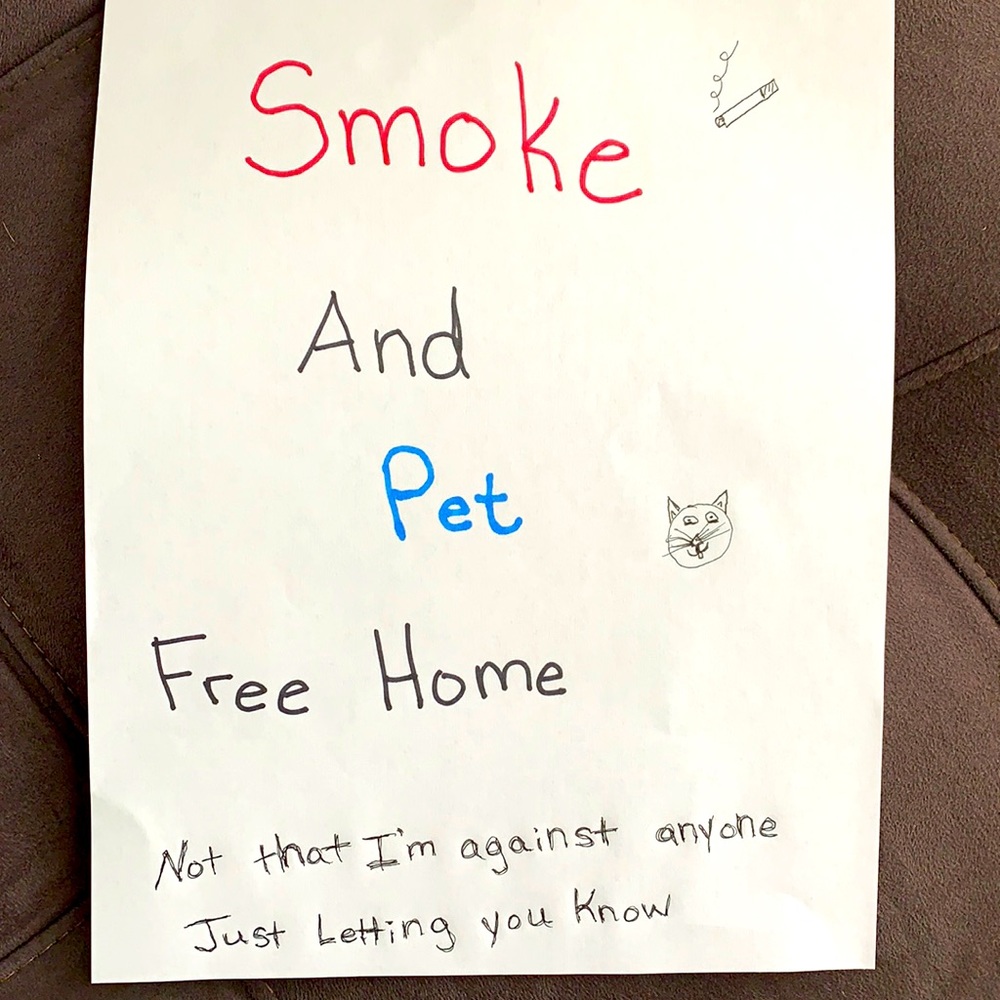 Smoke
And
Pet
Free Home
Not that I'm against anyone
Just Letting you Know